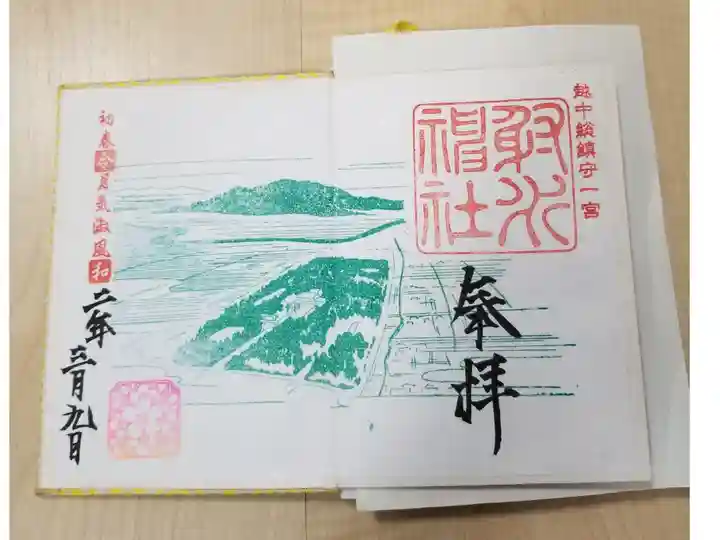 越中総鎮守一宮
射水
神社
奉拝
初春令月気淑風和
二年三月九日